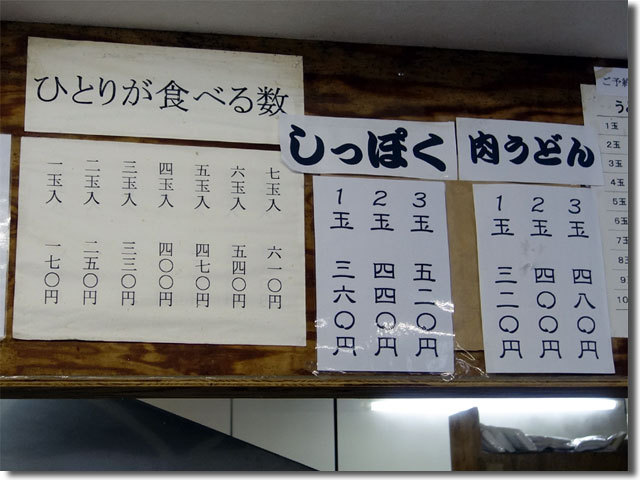 ひとりが食べる数
七玉入 六一〇円
六玉入 五四〇円
五玉入 四七〇円
四玉入 四〇〇円
三玉入 三三〇円
二玉入 二五〇円
一玉入 一七〇円
しっぽく
3玉 五二〇円
2玉 四四〇円
1玉 三六〇円
肉うどん
3玉 四八〇円
2玉 四〇〇円
1玉 三二〇円
ご予約
う
1玉
2玉
3玉
4玉
5玉
6玉
7玉
8玉
9玉
10